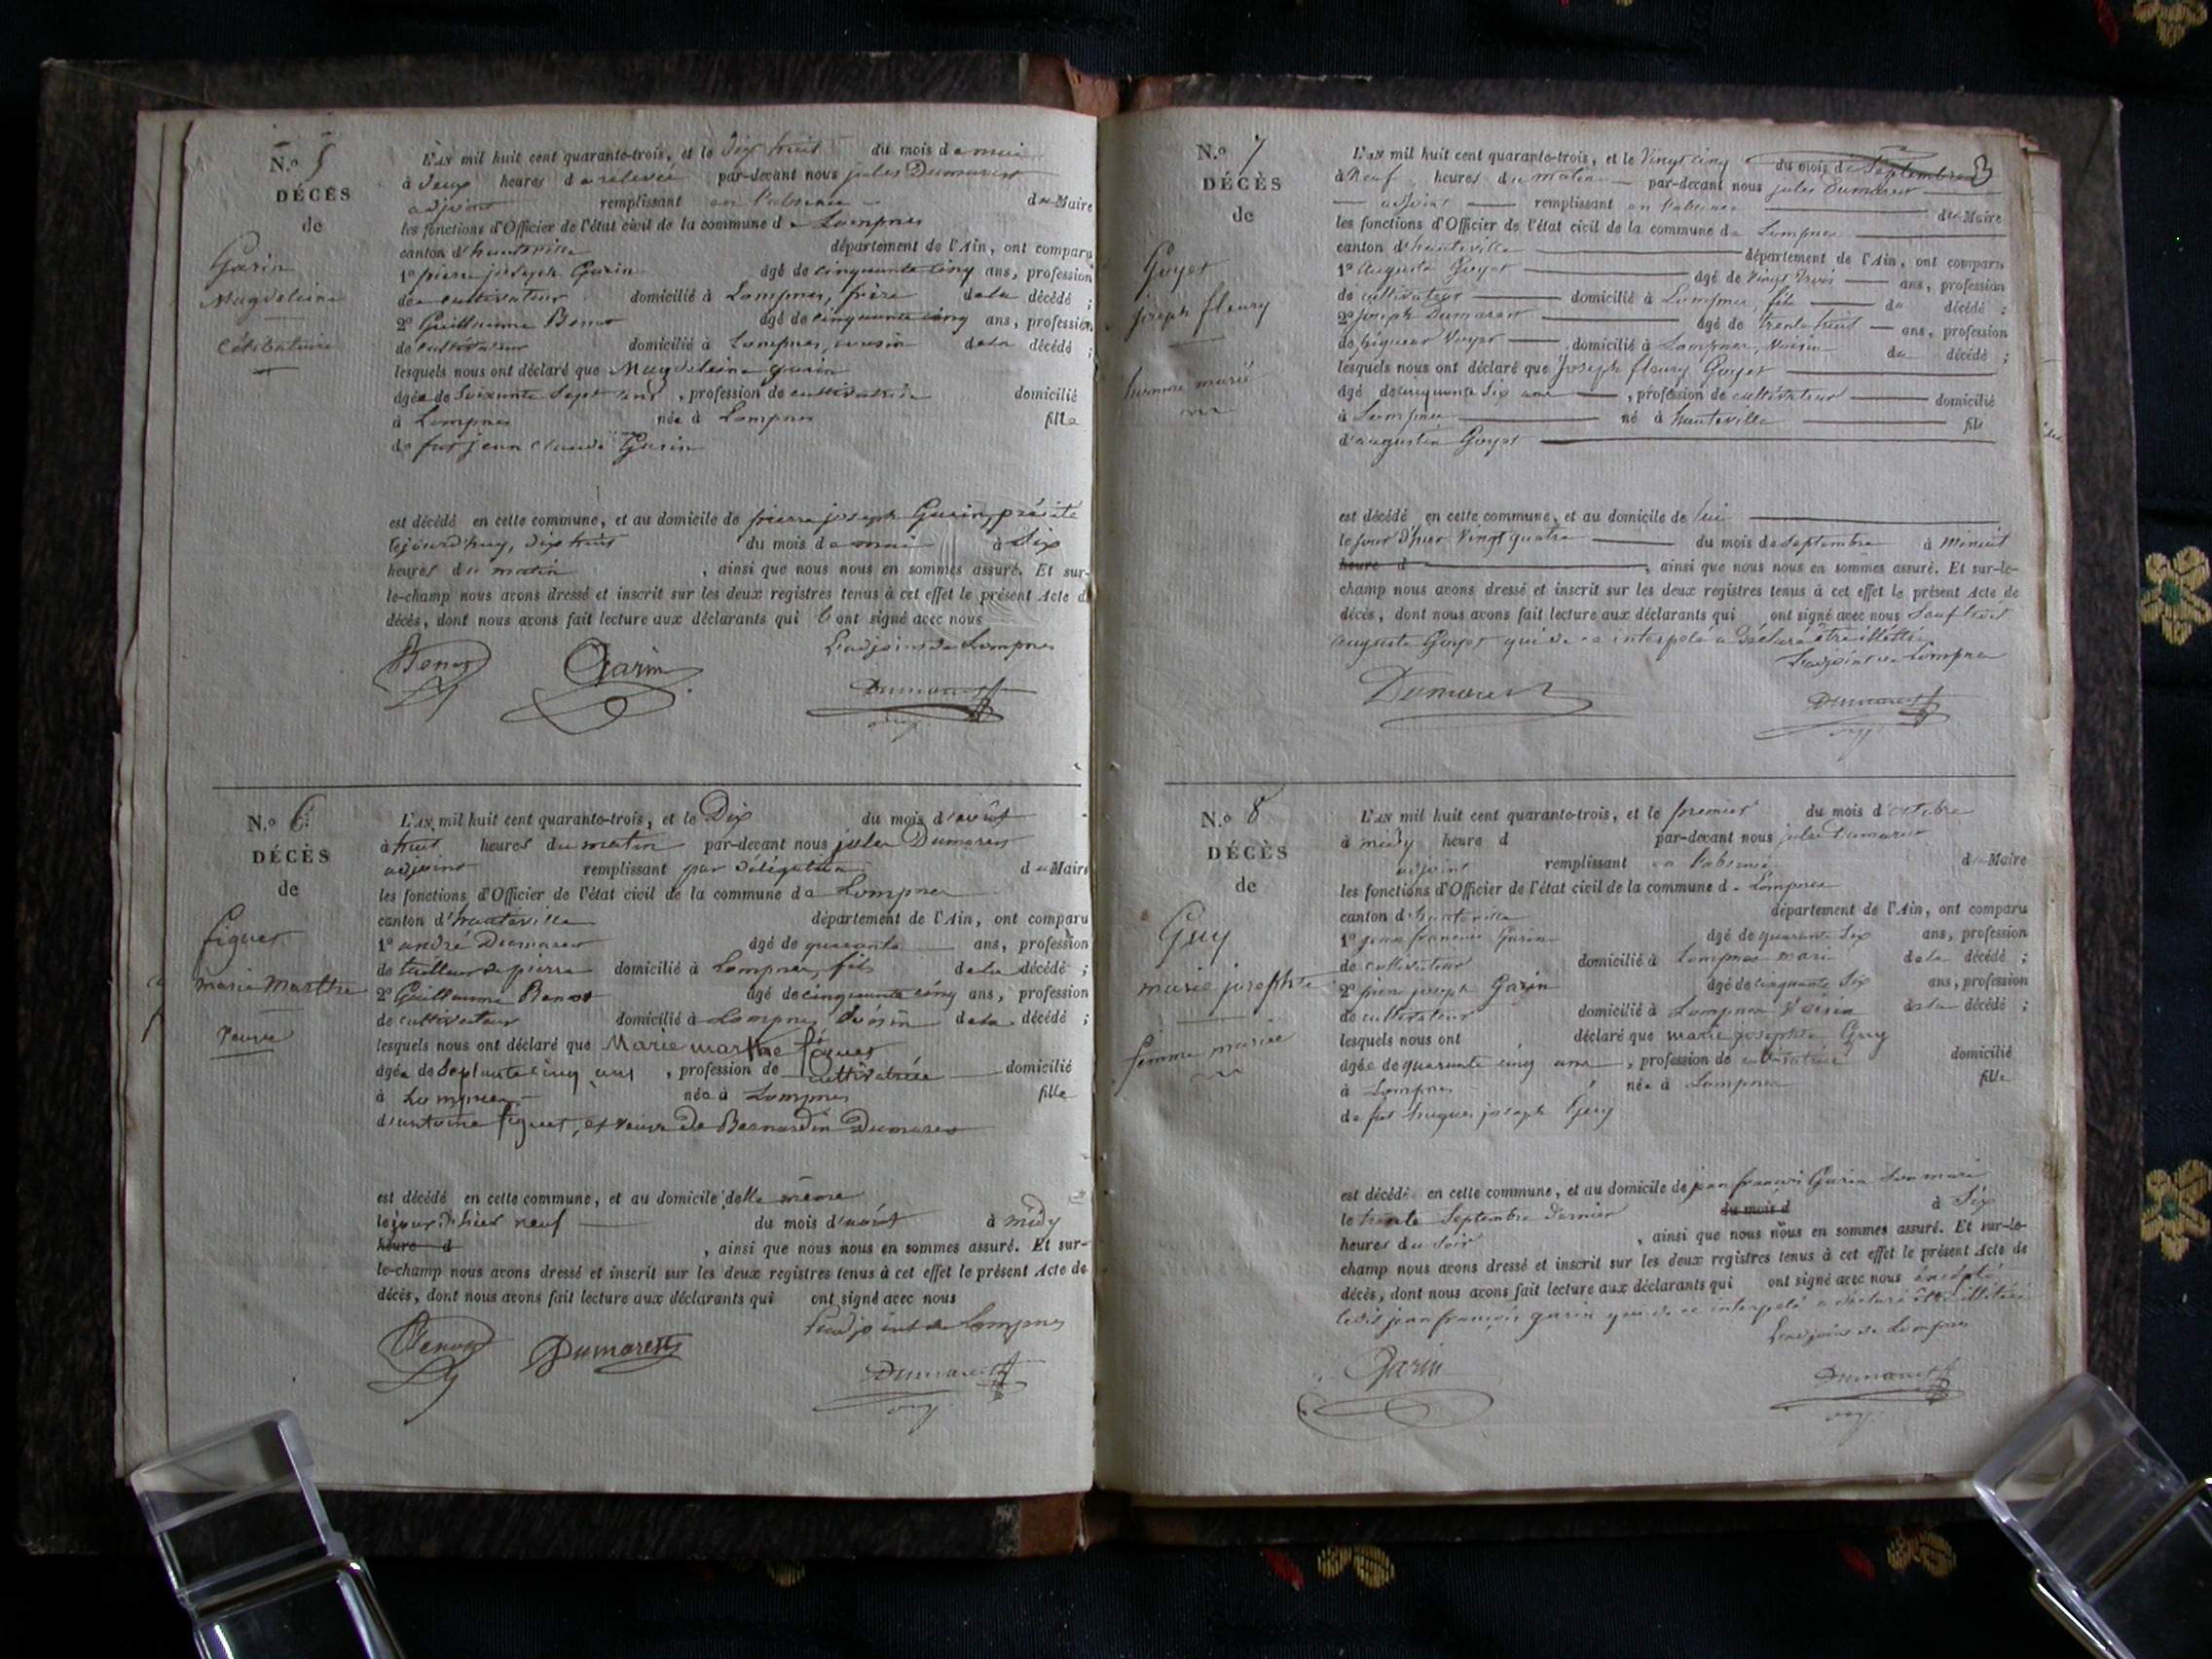 N.o 5
DÉCÈS
de
Garin
Magdeleine
célibataire
L'AN mil huit cent quarante-trois, et le dix huit du mois de mai
à deux heures de relevée par-devant nous jules Dumarest
adjoint remplissant en l'absence du Maire
les fonctions d'Officier de l'état civil de la commune de Lompnes
canton d'hauteville département de l'Ain, ont comparu
1o pierre joseph Garin âgé de cinquante cinq ans, profession
de cultivateur domicilié à Lompnes, frère de la décédé ;
2o Guillaume Benot âgé de cinquante cinq ans, profession
de cultivateur domicilié à Lompnes, cousin de la décédé ;
lesquels nous ont déclaré que Magdeleine garin
âgée de Soixante Sept ans, profession de cultivatrice domicilié
à Lompnes née à Lompnes fille
de fut jean claude Garin
est décédé en cette commune, et au domicile de pierre joseph Garin, précité
le jourd'huy, dix huit du mois de mai à Six
heures du matin, ainsi que nous nous en sommes assuré. Et sur-
le-champ nous avons dressé et inscrit sur les deux registres tenus à cet effet le présent Acte de
décès, dont nous avons fait lecture aux déclarants qui ont signé avec nous
L'adjoint de Lompnes
Benot Garin Dumarest
N.o 6
DÉCÈS
de
figuet
marie Marthe
veuve
L'AN mil huit cent quarante-trois, et le Dix du mois d'août
à huit heures du matin par-devant nous jules Dumarest
adjoint remplissant par délégation du Maire
les fonctions d'Officier de l'état civil de la commune de Lompnes
canton d'hauteville département de l'Ain, ont comparu
1o andré Dumarest âgé de quarante ans, profession
de tailleur de pierre domicilié à Lompnes, fils de la décédé ;
2o Guillaume Benot âgé de cinquante cinq ans, profession
de cultivateur domicilié à Lompnes, voisin de la décédé ;
lesquels nous ont déclaré que Marie marthe figuet
âgée de Septante cinq ans, profession de cultivatrice domicilié
à Lompnes née à Lompnes fille
d'antoine figuet, et veuve de Bernardin Dumarest
est décédé en cette commune, et au domicile d'elle même
le jour d'hier neuf du mois d'août à midy
heure d, ainsi que nous nous en sommes assuré. Et sur-
le-champ nous avons dressé et inscrit sur les deux registres tenus à cet effet le présent Acte de
décès, dont nous avons fait lecture aux déclarants qui ont signé avec nous
L'adjoint de Lompnes
Benot Dumarest Dumarest
3
N.o 7
DÉCÈS
de
Guyot
joseph fleury
homme marié
L'AN mil huit cent quarante-trois, et le Vingt cinq du mois de Septembre
à Neuf heures du matin par-devant nous jules Dumarest
adjoint remplissant en l'absence du Maire
les fonctions d'Officier de l'état civil de la commune de Lompnes
canton d'hauteville département de l'Ain, ont comparu
1o Auguste Guyot âgé de vingt trois ans, profession
de cultivateur domicilié à Lompnes, fils du décédé ;
2o joseph Dumarest âgé de trente huit ans, profession
de piqueur Voyer domicilié à Lompnes, Voisin du décédé ;
lesquels nous ont déclaré que Joseph fleury Guyot
âgé de cinquante Six ans, profession de cultivateur domicilié
à Lompnes né à hauteville fils
d'augustin Guyot
est décédé en cette commune, et au domicile de lui
le jour d'hier Vingt quatre du mois de Septembre à Minuit
heure d, ainsi que nous nous en sommes assuré. Et sur-le-
champ nous avons dressé et inscrit sur les deux registres tenus à cet effet le présent Acte de
décès, dont nous avons fait lecture aux déclarants qui ont signé avec nous Sauf ledit
auguste Guyot qui de ce interpelé a déclaré être illétré.
L'adjoint de Lompnes
Dumarest Dumarest
N.o 8
DÉCÈS
de
Guy
marie josephte
femme mariée
L'AN mil huit cent quarante-trois, et le premier du mois d'octobre
à midy heure d par-devant nous jules Dumarest
adjoint remplissant en l'absence du Maire
les fonctions d'Officier de l'état civil de la commune de Lompnes
canton d'hauteville département de l'Ain, ont comparu
1o jean francois Garin âgé de quarante Six ans, profession
de cultivateur domicilié à Lompnes mari de la décédé ;
2o pierre joseph Garin âgé de cinquante Six ans, profession
de cultivateur domicilié à Lompnes Voisin de la décédé ;
lesquels nous ont déclaré que marie josephte Guy
âgée de quarante cinq ans, profession de cultivatrice domicilié
à Lompnes née à Lompnes fille
de fut hugues joseph Guy
est décédé en cette commune, et au domicile de jean françois Garin Son mari
le trente Septembre dernier du mois d à Six
heures du Soir, ainsi que nous nous en sommes assuré. Et sur-le-
champ nous avons dressé et inscrit sur les deux registres tenus à cet effet le présent Acte de
décès, dont nous avons fait lecture aux déclarants qui ont signé avec nous excepté
ledit jean françois garin qui de ce interpelé a déclaré être illétré
L'adjoint de Lompnes
Garin Dumarest